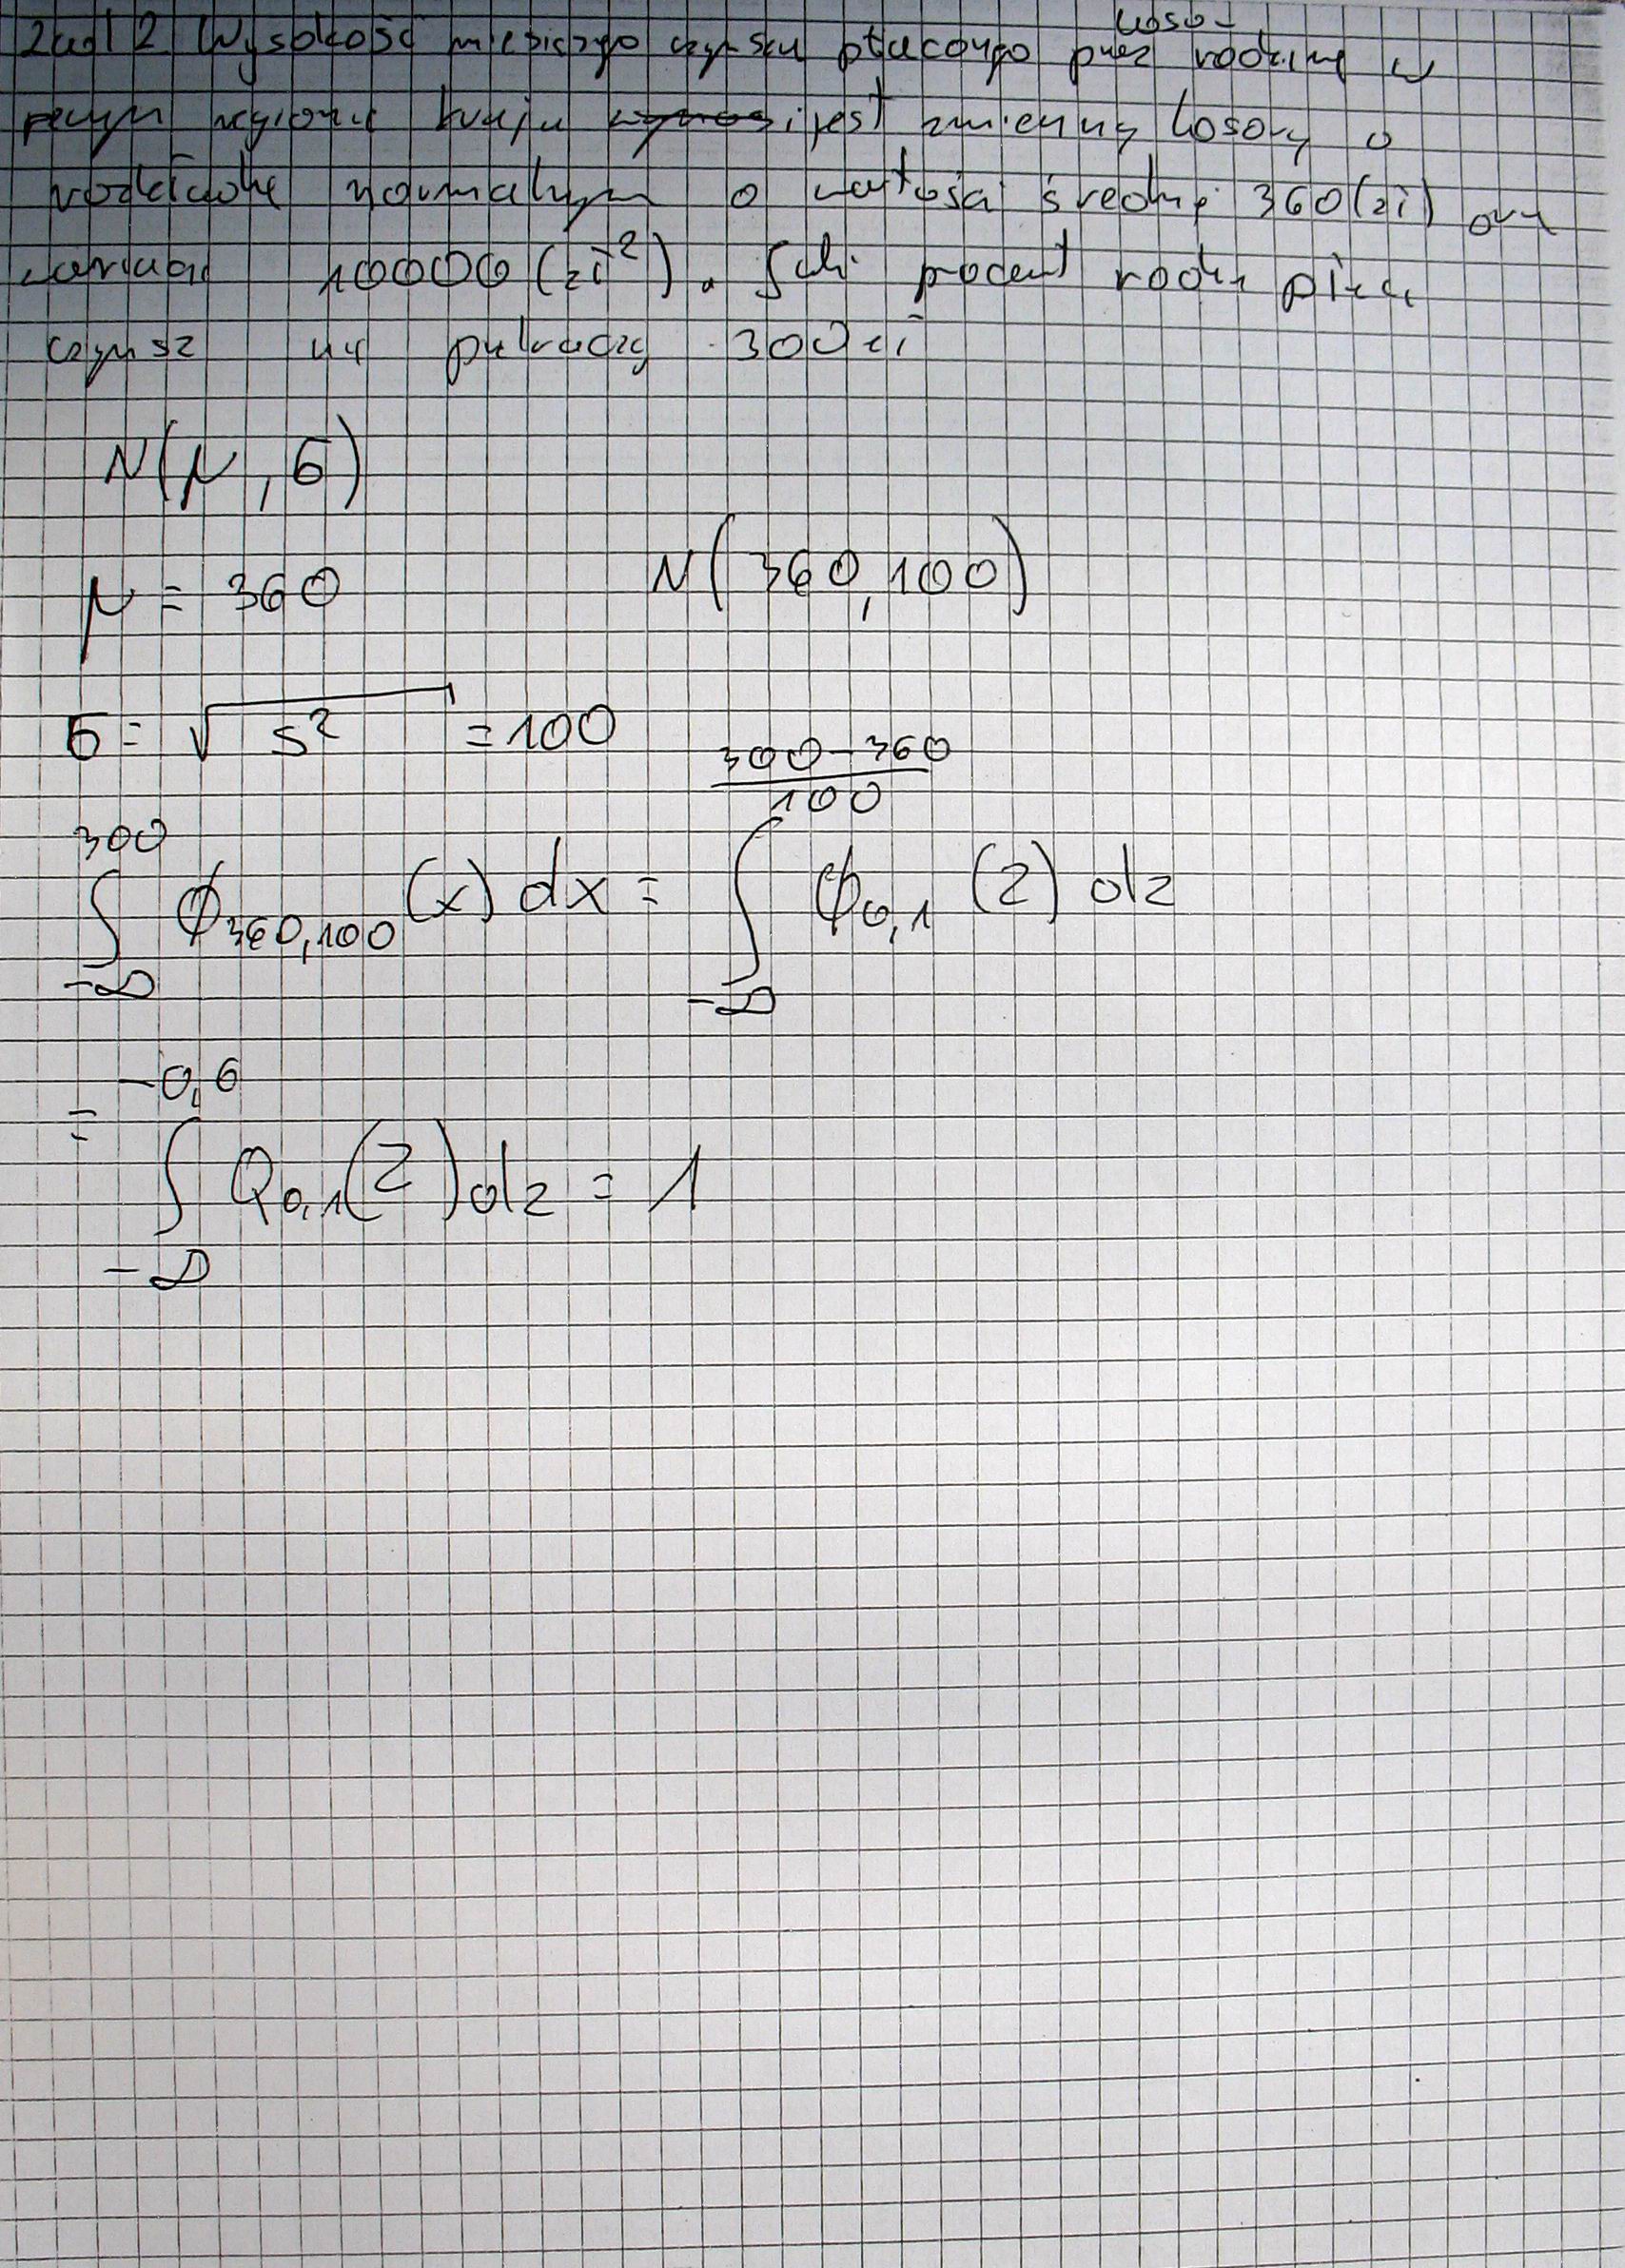 Zad 2 Wysokość czynszu płaconego przez loso-
rodzinę w
pewnym regionie kraju jest zmienną losową o
rozkładzie normalnym o wartości średniej 360(zł) oraz
wariancji 10000 (zł²). Jaki procent rodzin płaci
czynsz nie 300zł
N(μ, σ)
μ = 360
N(360,100)
σ = √s² = 100
∫_{-∞}^{300} φ_{360,100}(x) dx = ∫_{-∞}^{\frac{300-360}{100}} φ_{0,1}(z) dz
= ∫_{-∞}^{-0,6} φ_{0,1}(z) dz = 1